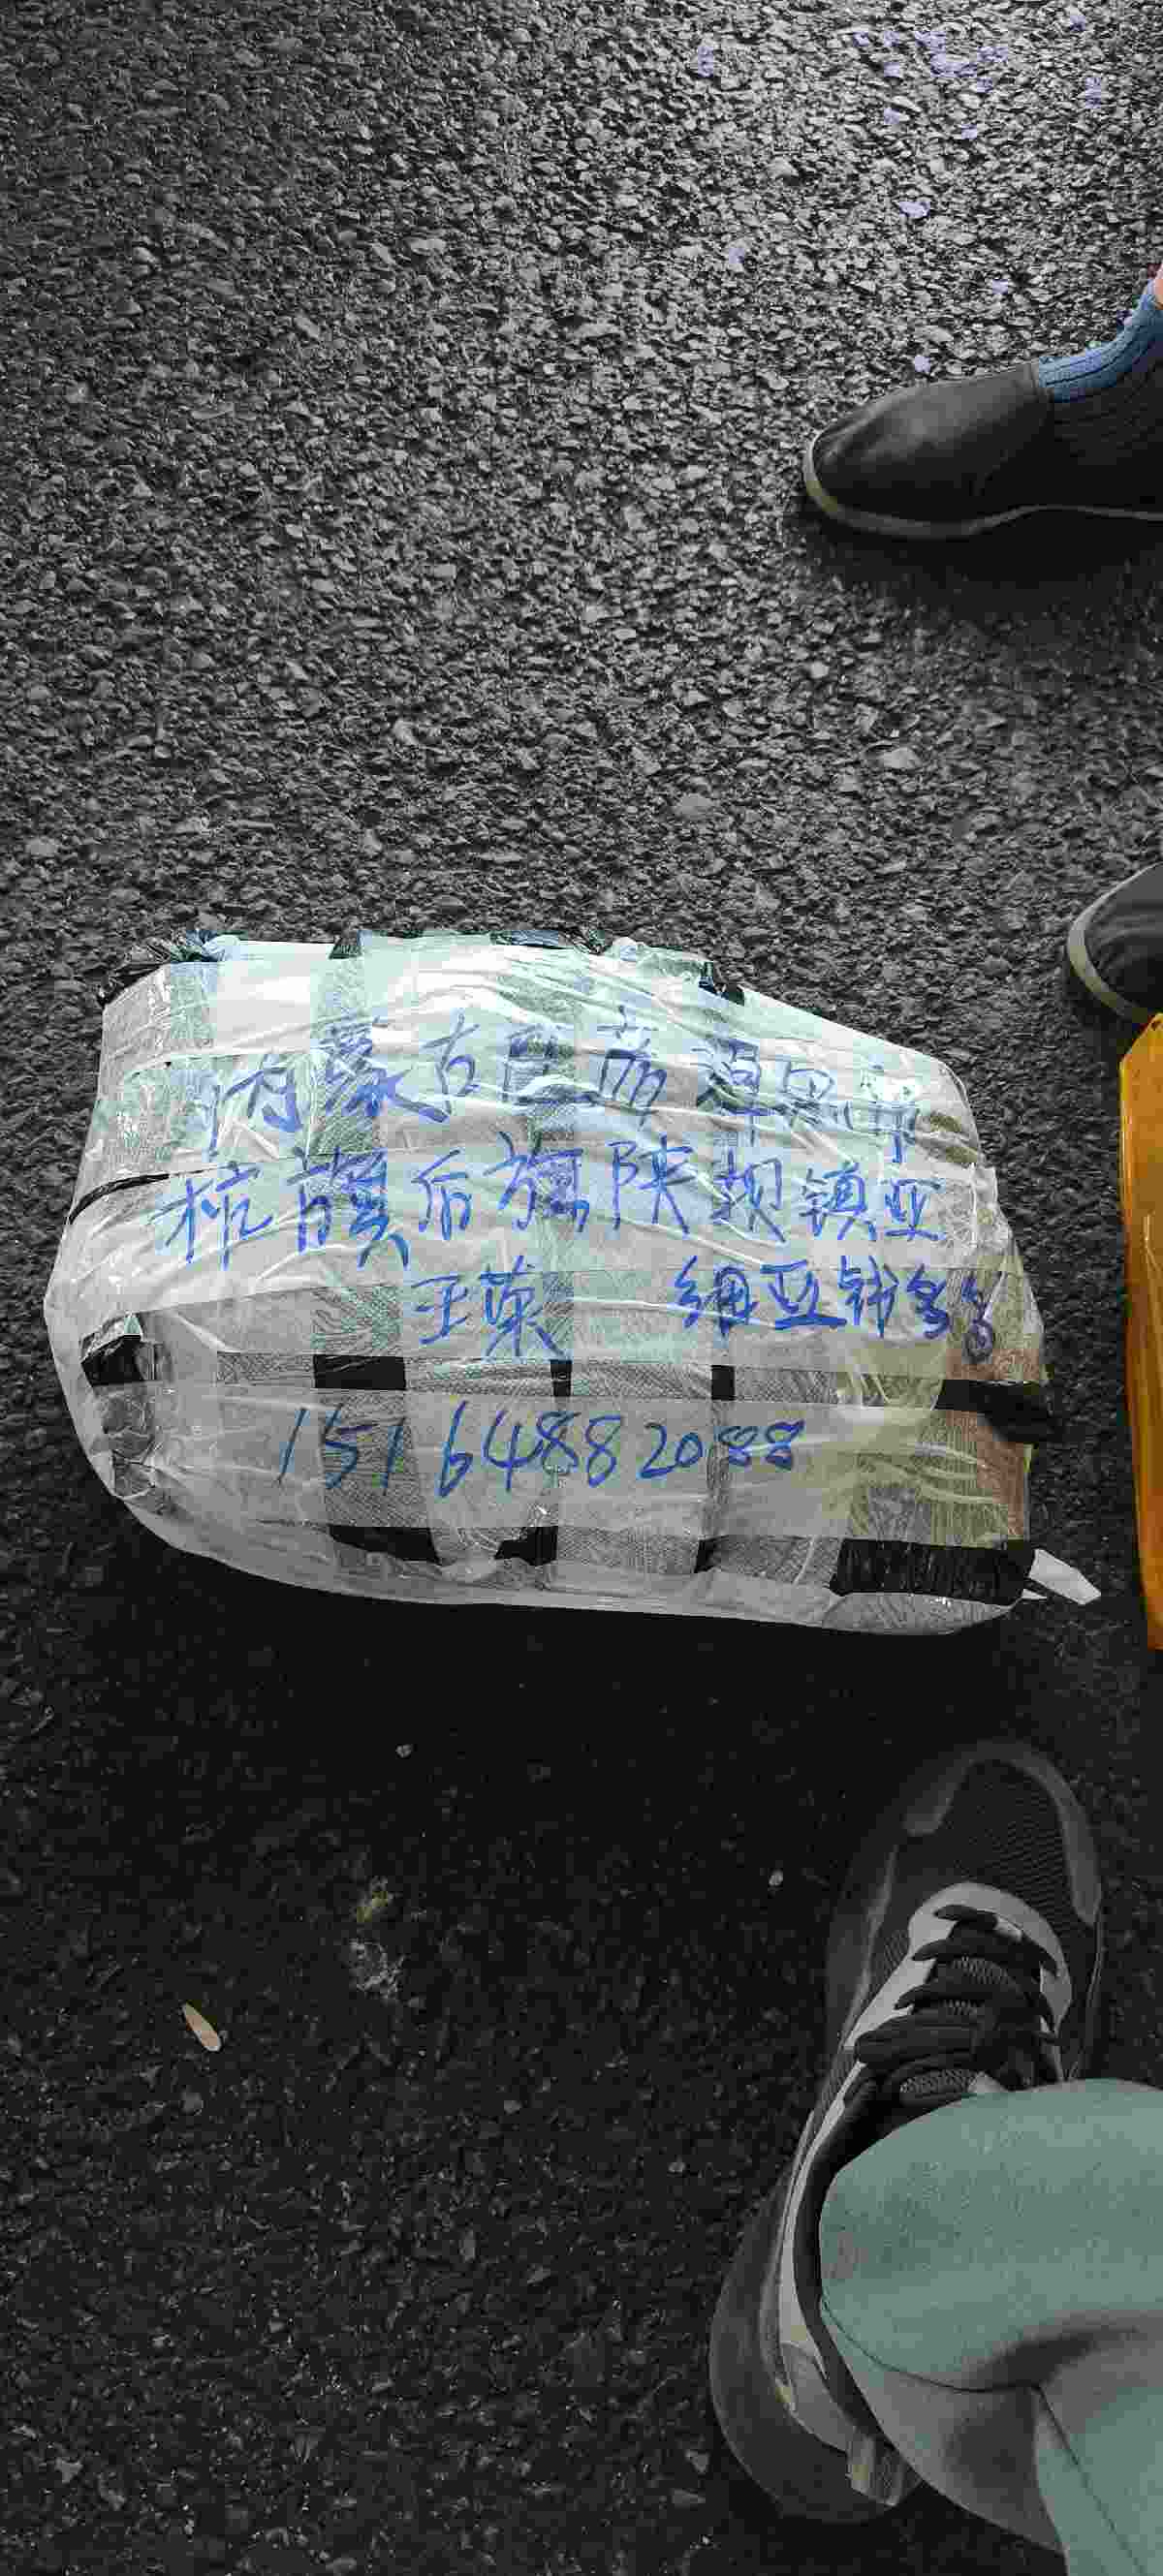 内蒙古巴彦淖尔市
杭锦后旗陕坝镇亚
王荣 细亚钱多多
15164882088